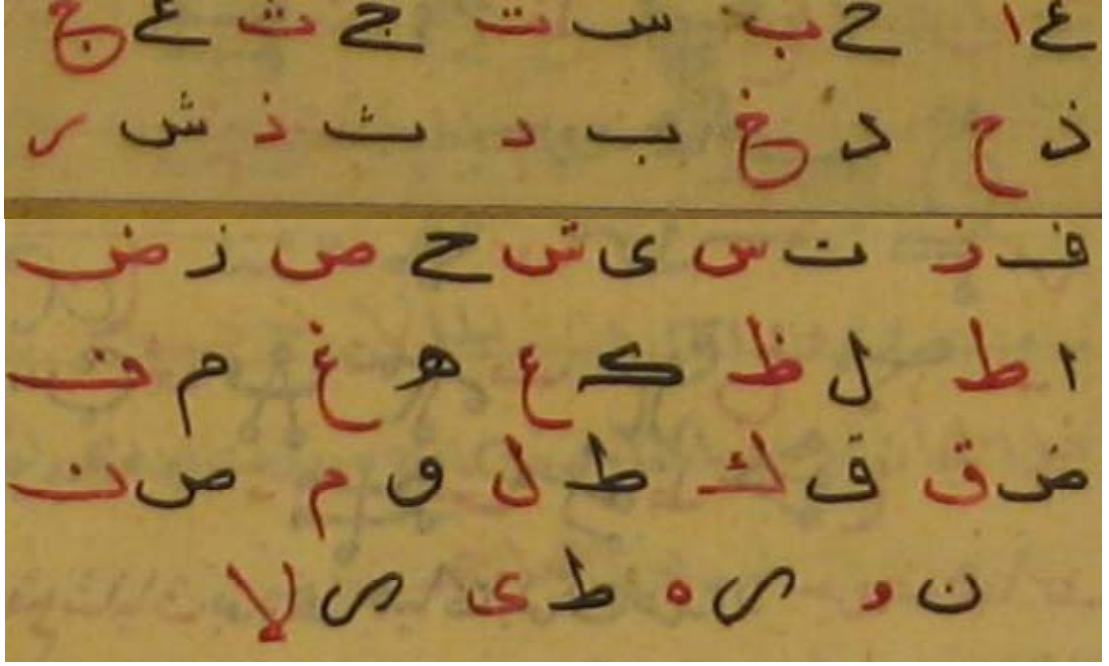 ع ا ح ب س ت ج ث ع ج
ذ ح د خ ب د ث ذ ش ر
ف ز ت س ى ش ح ص ز ض
ا ط ل ظ ك ع ه غ م ف
ض ق ق ك ط ل و م ص ن
ن و ى ه ط ى ى لا